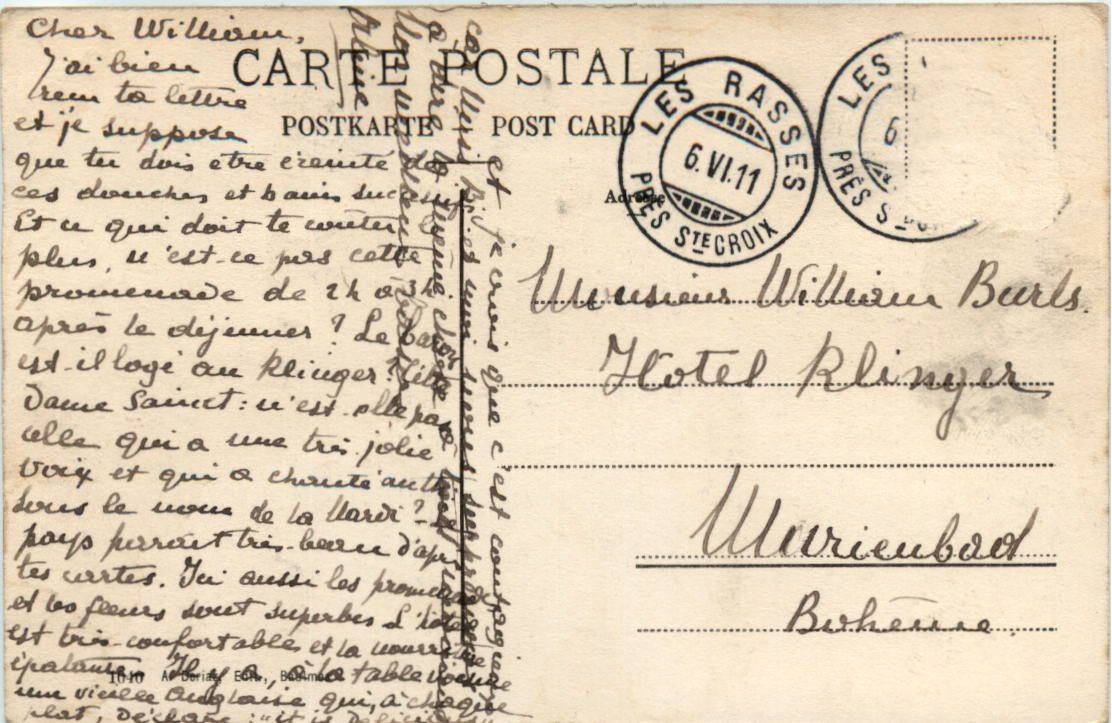 CARTE POSTALE
POSTKARTE POST CARD
Adresse
LES RASSES
6.VI.11
PRÈS STE CROIX
LES
6
PRÈS S
Monsieur William Burls.
Hôtel Klinger
Marienbad
Bohême.
Cher William,
J'ai bien
reçu ta lettre
et je suppose
que tu dois etre éreinté de
ces douches et bains
Et ce qui doit te coûter le
plus, n'est-ce pas cette
promenade de 2h à 3h
après le déjeuner? Le
est-il logé au Klinger? Cette
Dame Sainct: n'est-elle pas
celle qui a une très jolie
voix et qui a chanté
sous le nom de la Nardi? Le
pays paraît très-beau d'après
tes cartes. Ici aussi les promenades
et les fleurs sont superbes L'hôtel
est très-confortable et la nourriture
épatante. Il y a, à la table voisine
une vieille Anglaise qui, à chaque
plat, déclare: "it is delicious"
et je crois que c'est contagieux
car
à dire la même chose
Aline
1640 A. Deriaz, Edit., Baulmes